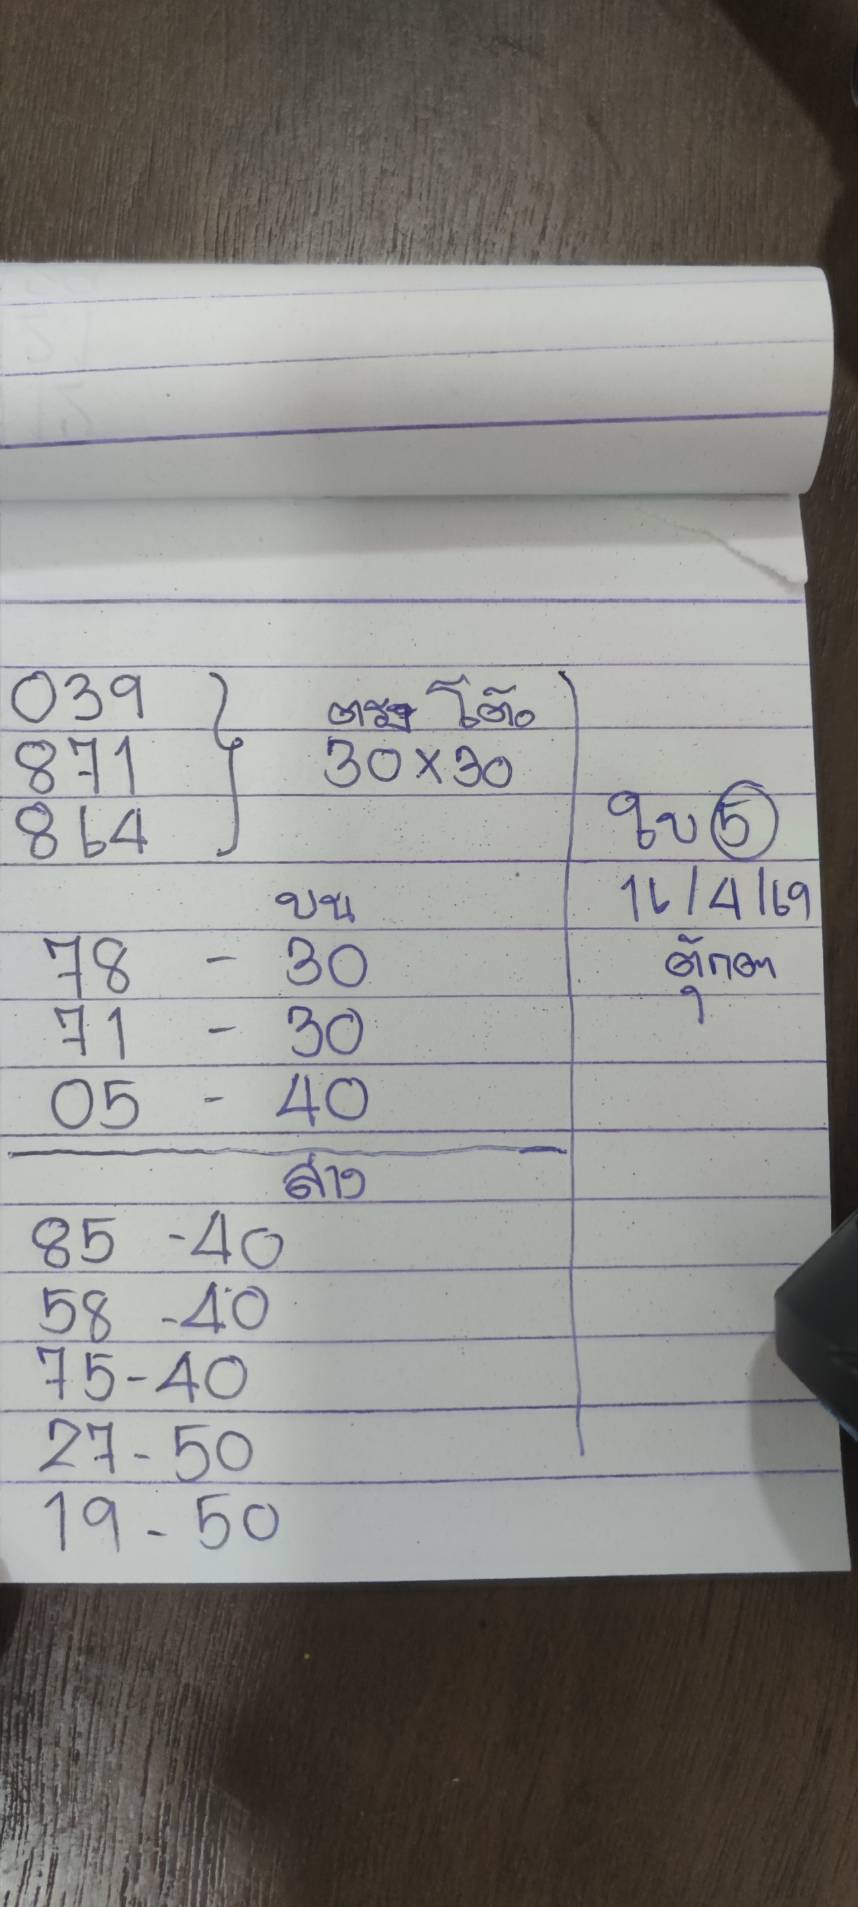 039
871
864
ตรง โต๊ด
30×30
บน
78 - 30
71 - 30
05 - 40
ล่าง
85 - 40
58 - 40
75 - 40
27 - 50
19 - 50
ใบ 5
16/4/69
ตุ๊กตา